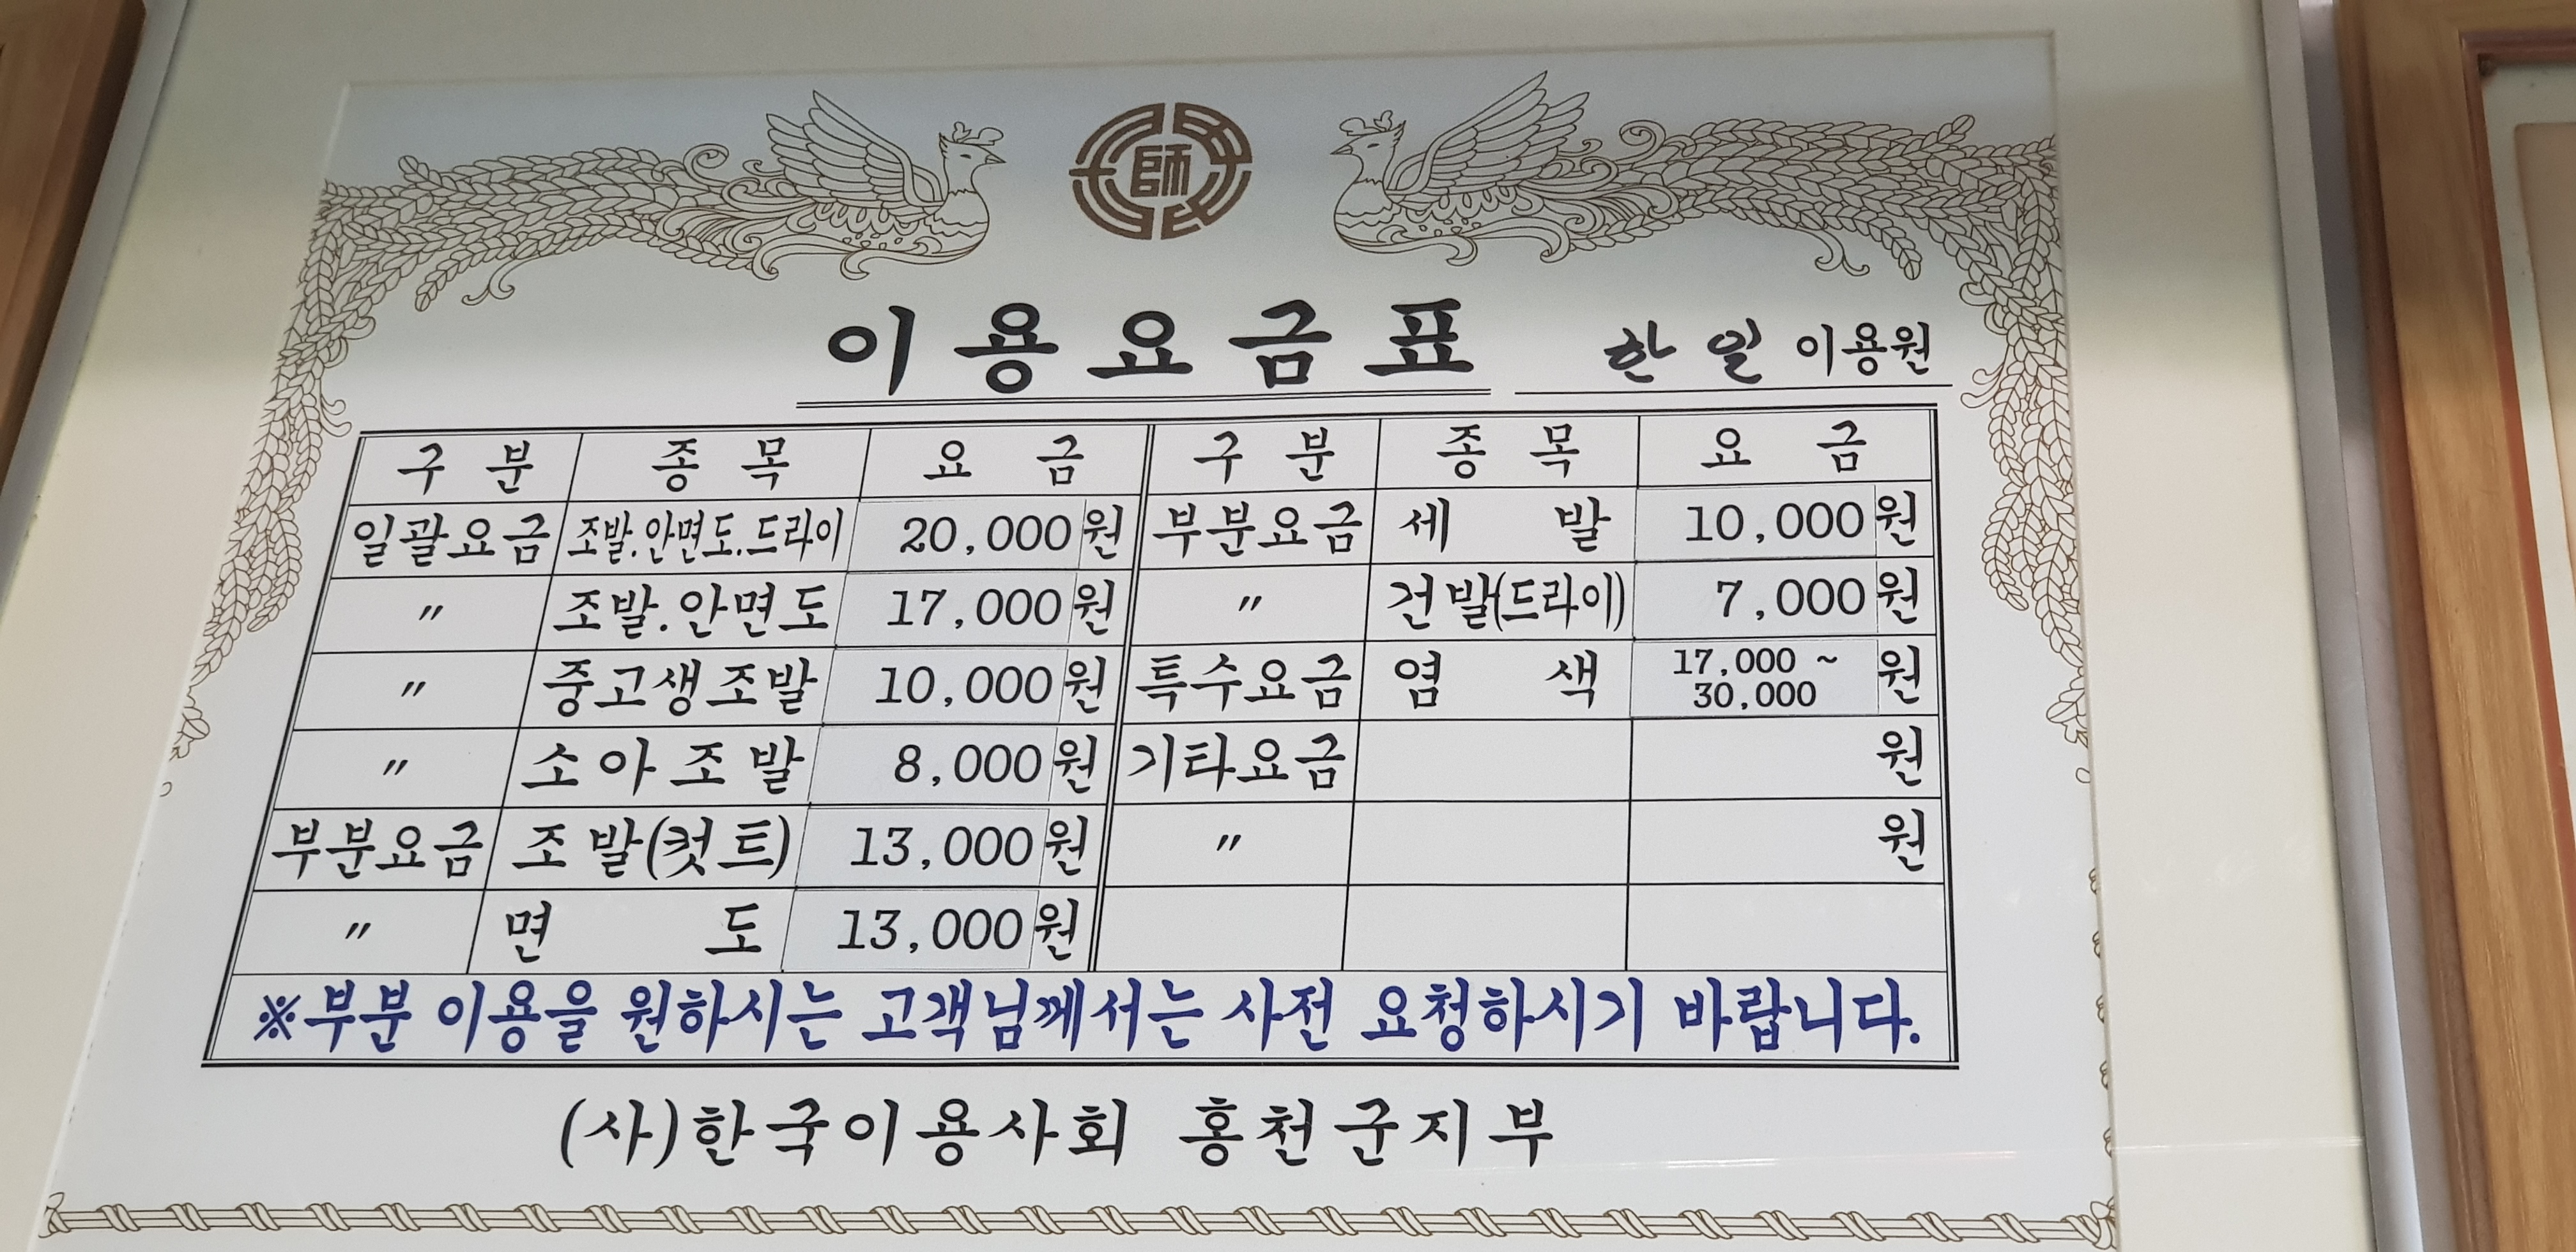 師
이용요금표 한일 이용원
구분 종목 요금 구분 종목 요금
일괄요금 조발.안면도.드라이 20,000원 부분요금 세발 10,000원
〃 조발.안면도 17,000원 〃 건발(드라이) 7,000원
〃 중고생조발 10,000원 특수요금 염색 17,000 ~ 30,000 원
〃 소아조발 8,000원 기타요금 원
부분요금 조발(컷트) 13,000원 〃 원
〃 면도 13,000원
※부분 이용을 원하시는 고객님께서는 사전 요청하시기 바랍니다.
(사)한국이용사회 홍천군지부